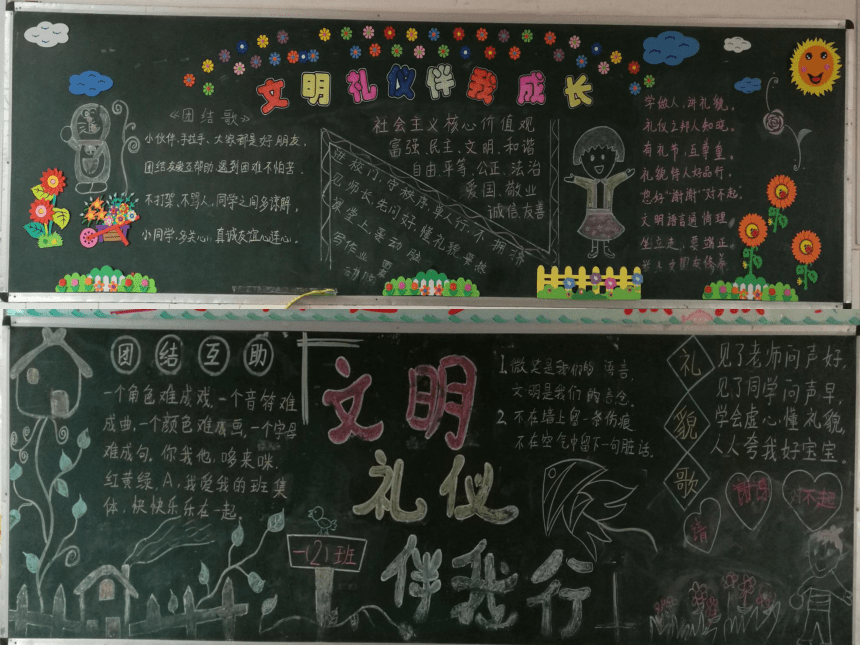 文明礼仪伴我成长
《团结歌》
小伙伴、手拉手、大家都是好朋友，
团结友爱互帮助、遇到困难不怕苦、
不打架、不骂人，同学之间多谅解，
小同学、多关心、真诚友谊心连心。
社会主义核心价值观
富强、民主、文明、和谐
自由、平等、公正、法治
爱国、敬业
诚信、友善
进校门，守秩序，单人行，不拥挤
见师长，先问好，懂礼貌
课堂上要动脑
写作业要
学做人，讲礼貌，
礼仪立邦人知晓。
有礼节，五尊重，
礼貌待人好品行，
您好“谢谢”对不起，
文明语言通情理
坐立走，要端正
团结互助
一个角色难成戏，一个音符难
成曲，一个颜色难画，一个字母
难成句，你我他，哆来咪，
红黄绿，A，我爱我的班集
体，快快乐乐在一起。
文明
礼仪
伴我行
一(2)班
1.微笑是我们的语言，
文明是我们的信念。
2.不在墙上留一条伤痕
不在空气中留下一句脏话。
礼貌歌
见了老师问声好，
见了同学问声早，
学会虚心懂礼貌，
人人夸我好宝宝。
请
谢谢
对不起